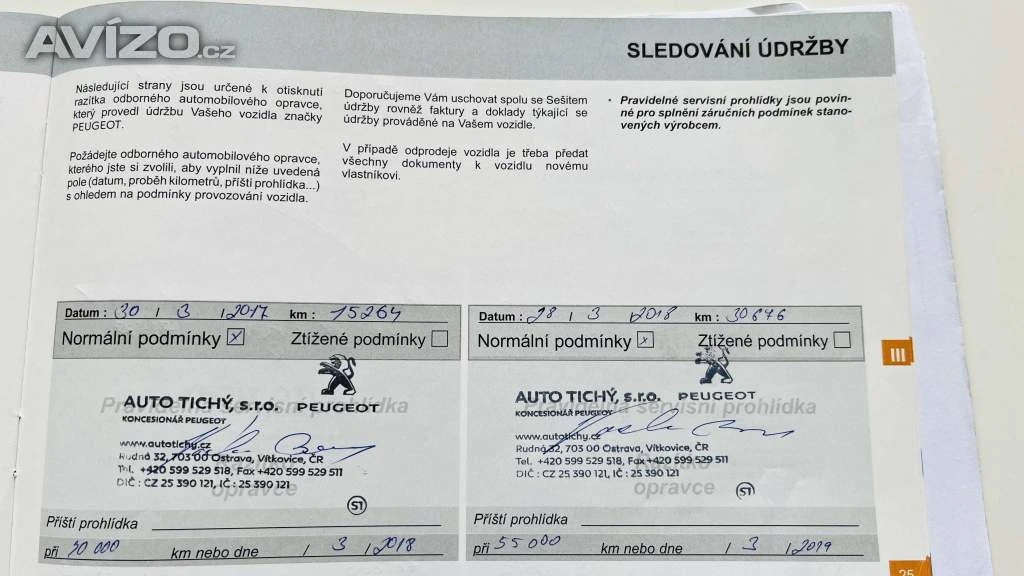 AVÍZO.cz
SLEDOVÁNÍ ÚDRŽBY
Následující strany jsou určené k otisknutí
razítka odborného automobilového opravce,
který provedl údržbu Vašeho vozidla značky
PEUGEOT.
Požádejte odborného automobilového opravce,
kterého jste si zvolili, aby vyplnil níže uvedená
pole (datum, proběh kilometrů, příští prohlídka...)
s ohledem na podmínky provozování vozidla.
Doporučujeme Vám uschovat spolu se Sešitem
údržby rovněž faktury a doklady týkající se
údržby prováděné na Vašem vozidle.
V případě odprodeje vozidla je třeba předat
všechny dokumenty k vozidlu novému
vlastníkovi.
• Pravidelné servisní prohlídky jsou povin-
né pro splnění záručních podmínek stano-
vených výrobcem.
Datum : 30 / 3 / 2017 km : 15264
Normální podmínky x Ztížené podmínky
Pravidelná servisní prohlídka
AUTO TICHÝ, s.r.o. PEUGEOT
KONCESIONÁŘ PEUGEOT
www.autotichy.cz
Rudná 32, 703 00 Ostrava, Vítkovice, ČR
Tel. +420 599 529 518, Fax +420 599 529 511
DIČ : CZ 25 390 121, IČ : 25 390 121
opravce
S1
Příští prohlídka
při 40 000 km nebo dne / 3 / 2018
Datum : 28 / 3 / 2018 km : 30676
Normální podmínky x Ztížené podmínky
Pravidelná servisní prohlídka
AUTO TICHÝ, s.r.o. PEUGEOT
KONCESIONÁŘ PEUGEOT
www.autotichy.cz
Rudná 32, 703 00 Ostrava, Vítkovice, ČR
Tel. +420 599 529 518, Fax +420 599 529 511
DIČ : CZ 25 390 121, IČ : 25 390 121
opravce
S1
Příští prohlídka
při 55 000 km nebo dne / 3 / 2019
III
25